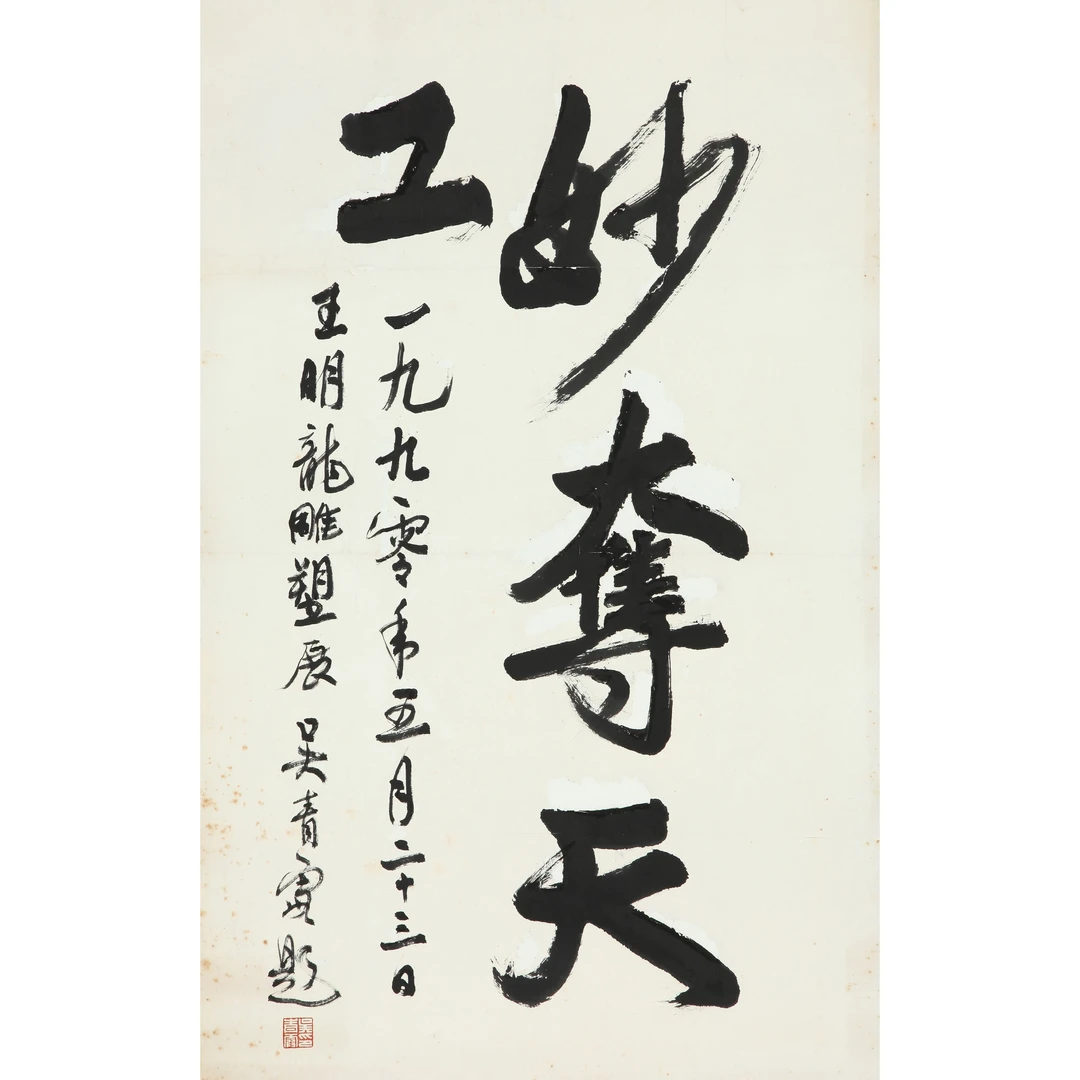 妙奪天
工
一九九零年五月二十三日
王明龍雕塑展 吴青霞題